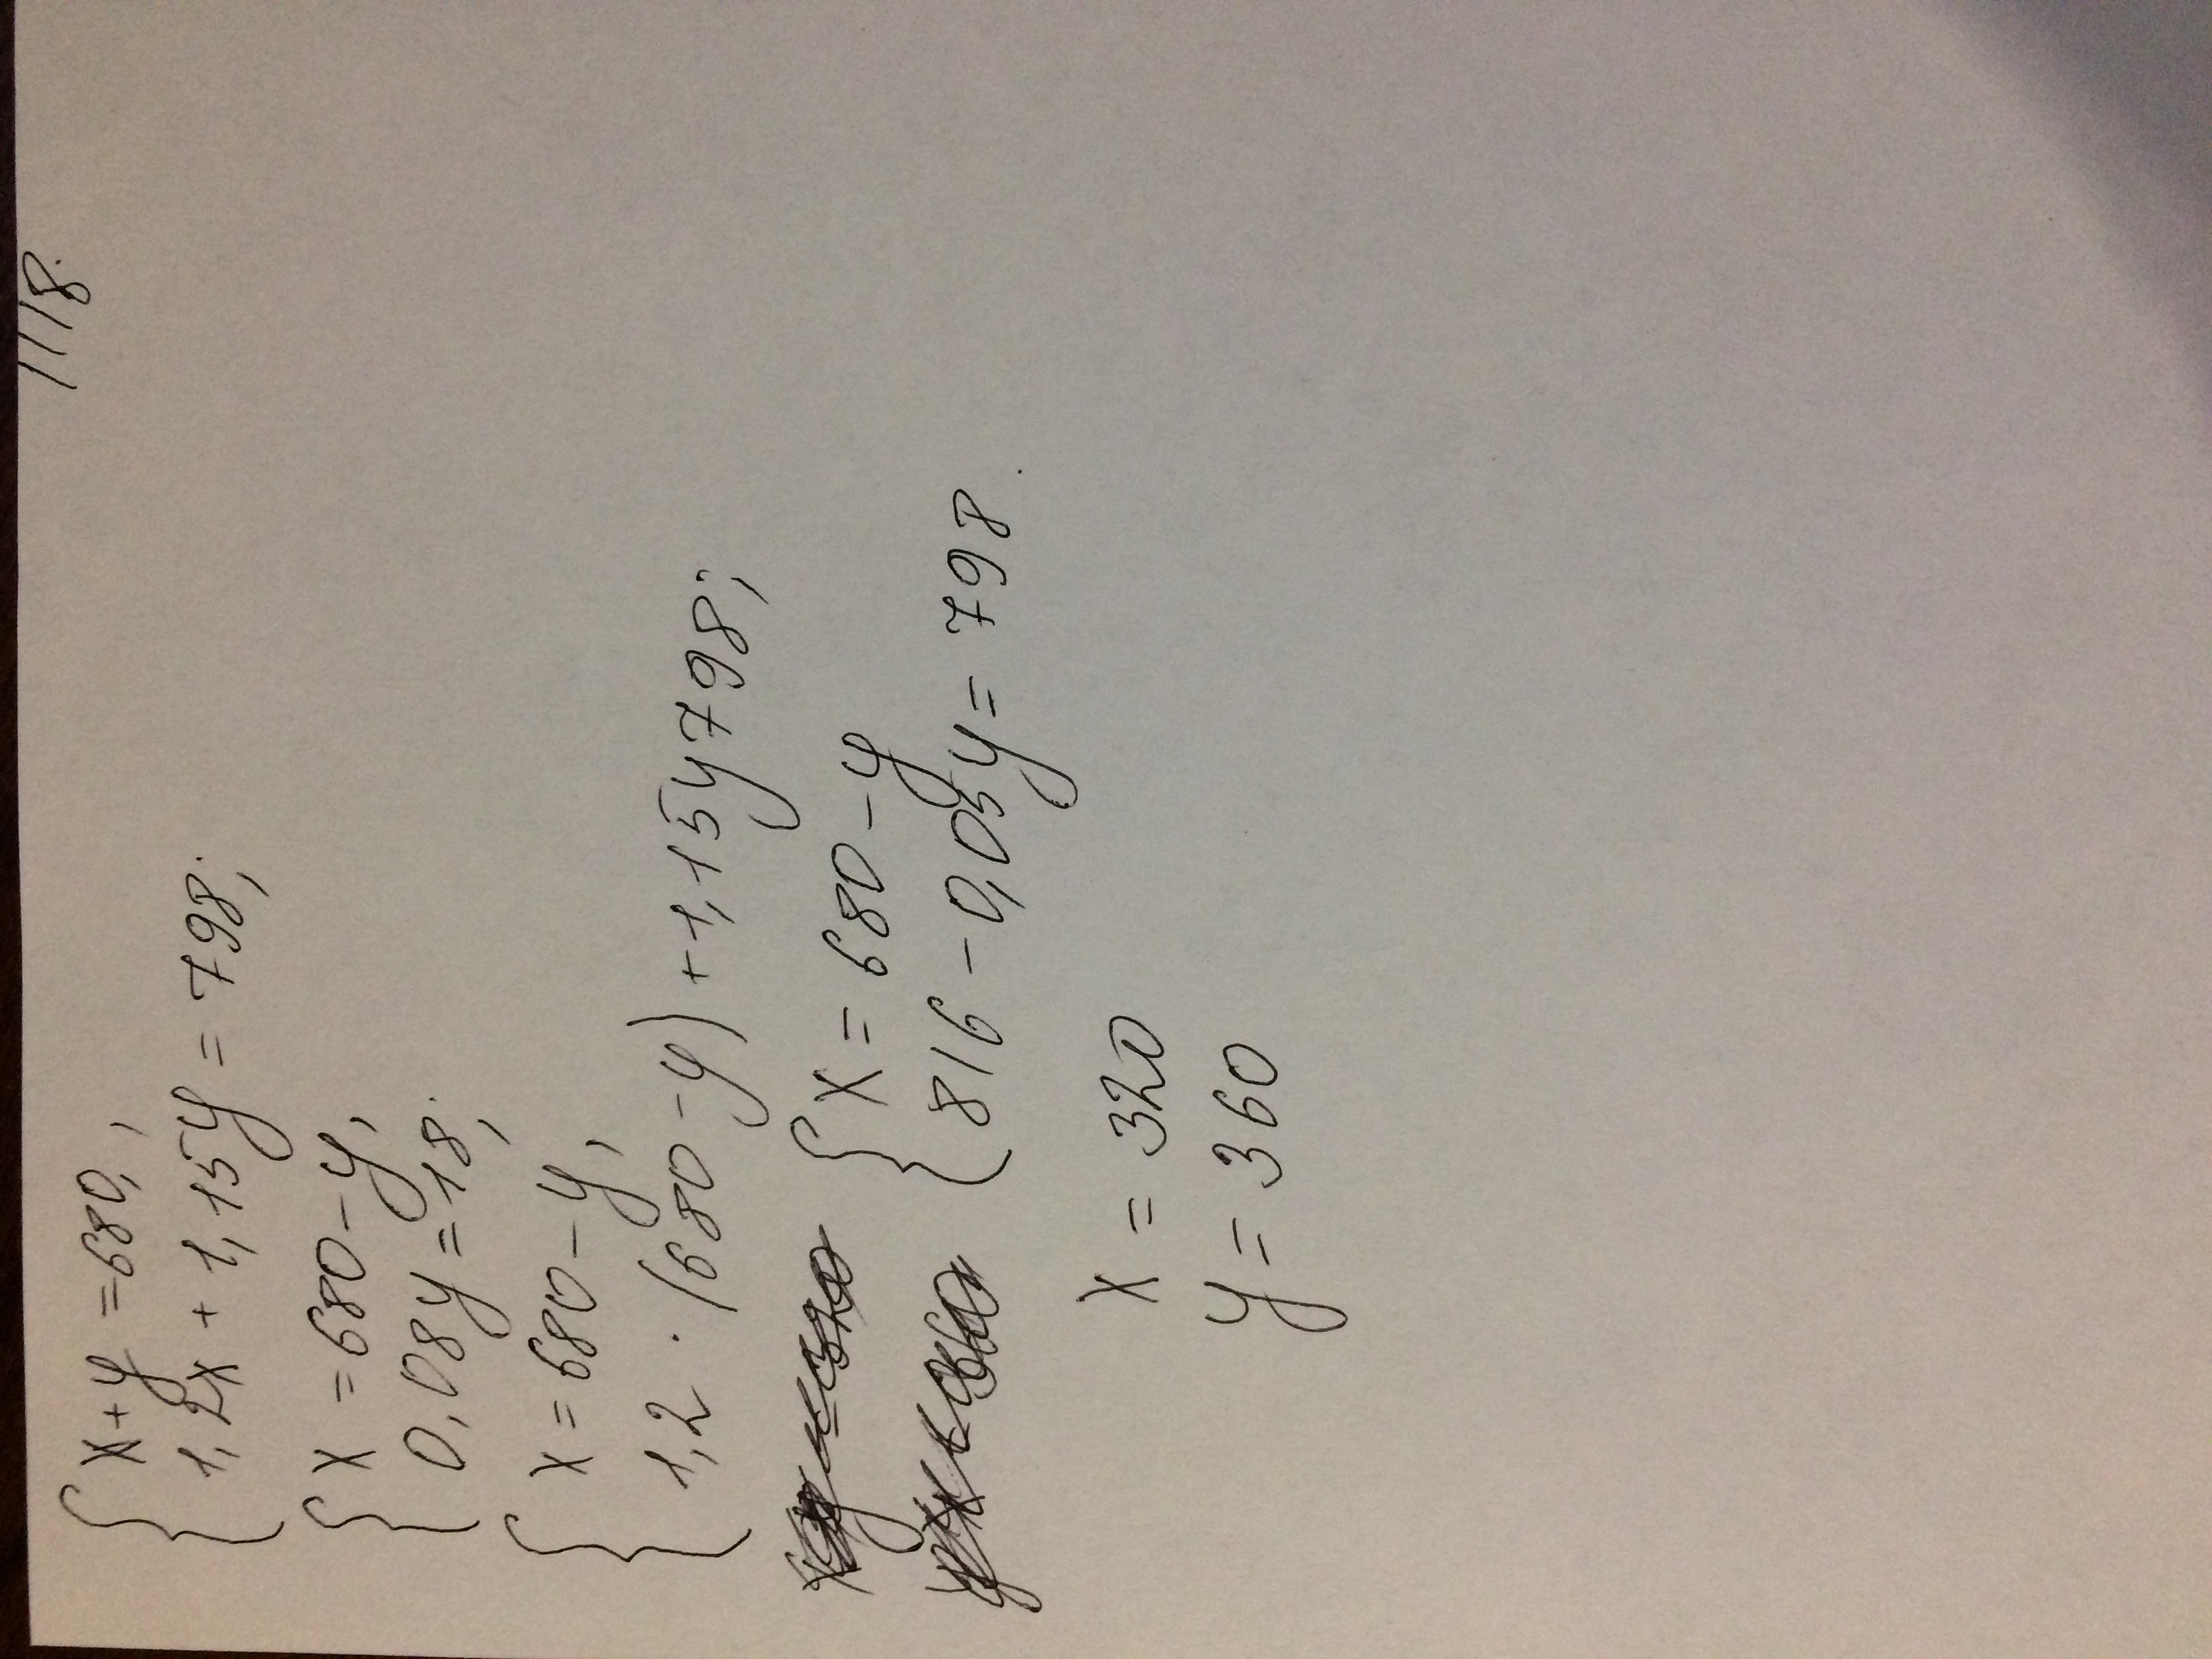 1118.
x+y=680,
1,2x+1,15y=798;
x=680-y,
0,08y=18;
x=680-y,
1,2·(680-y)+1,15y798;
x=680-y
816-0,05y=798.
x=320
y=360